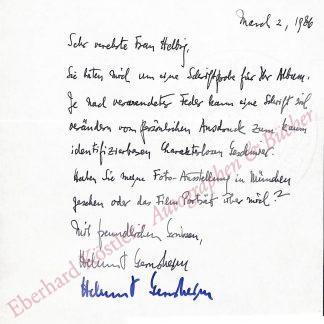 March 2, 1986
Sehr verehrte Frau Helbig,
Sie bitten mich um eine Schriftprobe für Ihr Album.
Je nach verwendeter Feder kann eine Schrift sich
verändern vom persönlichen Ausdruck zum kaum
identifizierbaren charakterlosen
Haben Sie meine Foto-Ausstellung in München
gesehen oder das Film Porträt über mich?
Mit freundlichen Grüssen,
Helmut Gernsheim
Helmut Gernsheim
Eberhard Köstler Autographen & Bücher